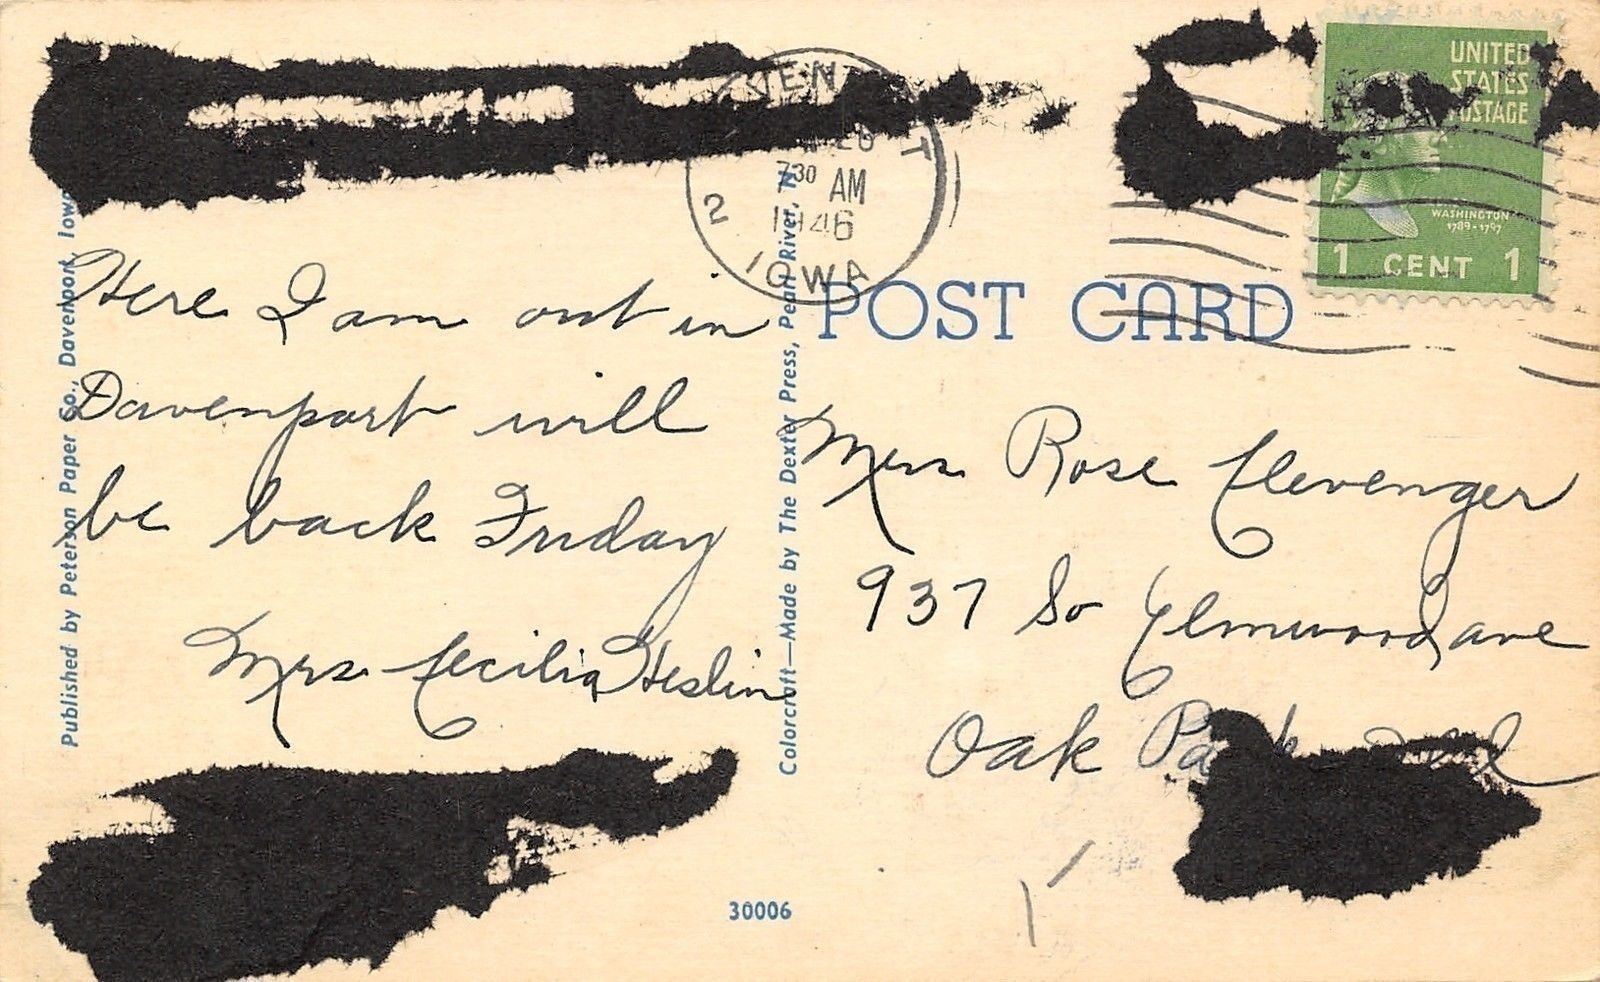 Here I am out in
Davenport will
be back Friday
Mrs Cecilia Heslin
Published by Peterson Paper Co., Davenport, Iowa
Colorcraft—Made by The Dexter Press, Pearl River, N
30006
7 30 AM
1946
2
IOWA
UNITED
STATES
POSTAGE
WASHINGTON
1789-1797
1 CENT 1
POST CARD
Mrs Rose Clevenger
937 So Elmwood ave
Oak Park Ill